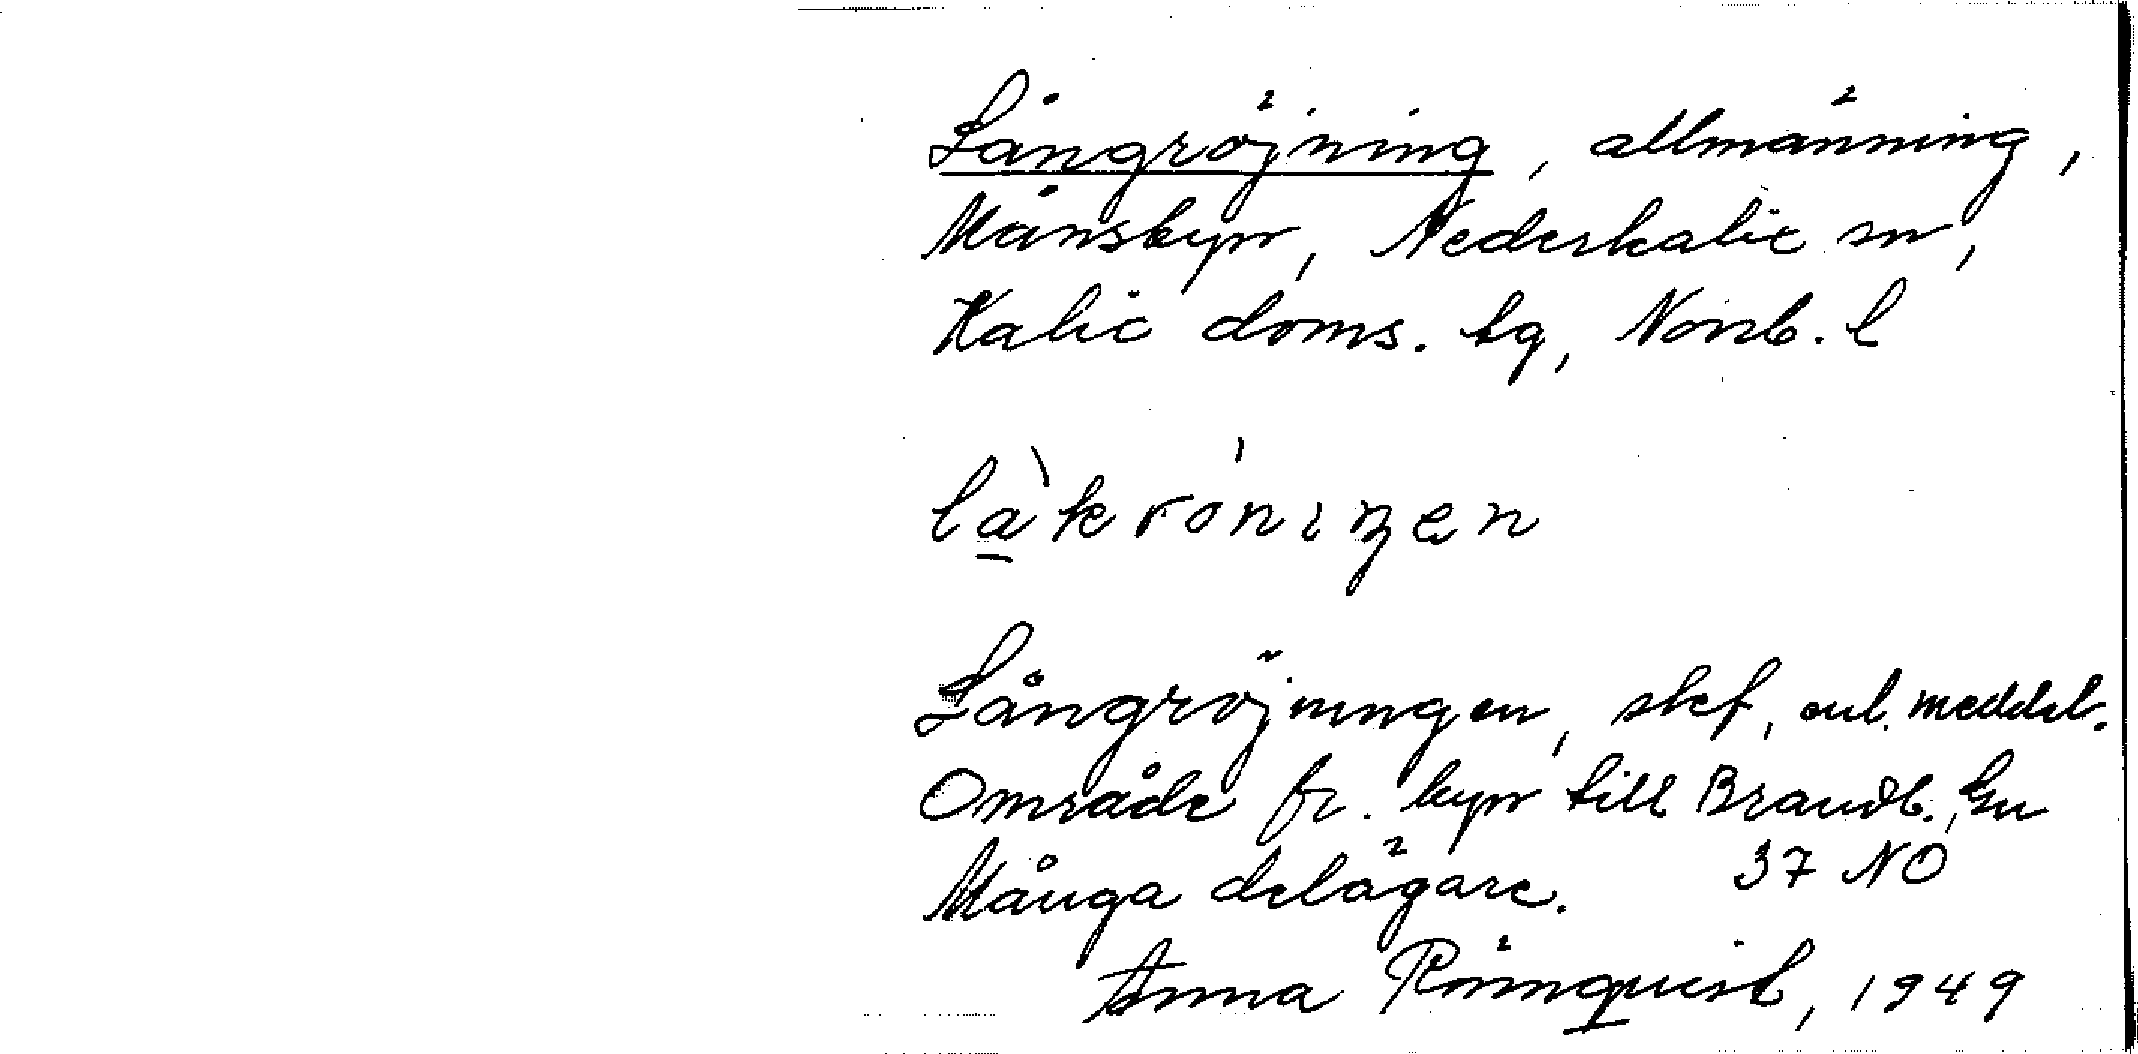 Långröjning, allmänning,
Månsbyn, Nederkalix sn,
Kalix doms. tg, Norrb. l
Långröjningen, skf, enl. meddel.
Område fr. byn till Brändb.,
Många delägare. 37 NO
Anna Rönnqvist, 1949